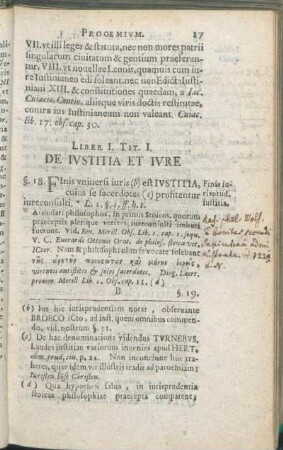 PROOEMIUM. 17
VII. vt illi leges & statuta, nec non mores patrii
singularum ciuitatum & gentium praeferan-
tur. VIII. vt nouellae Leonis, quamuis cum iu-
re Iustinianeo edi soleant, nec non Edicta Iusti-
niani XIII. & constitutiones quaedam, a Iac.
Cuiacio, Contio, aliisque viris doctis restitutae,
contra ius Iustinianeum non valeant. Cuiac.
lib. 17. obs. cap. 30.
LIBER I. TIT. I.
DE IVSTITIA ET IVRE
§. 18. FInis vniuersi iuris (b) est IVSTITIA,
cuius se sacerdotes (c) profitentur
iureconsulti. * L. 1. §. 1. ff. h. t.
Finis iu-
ris est
iustitia.
* Aemulati philosophos, in primis Stoicos, quorum
praeceptis plerique veteres iureconsulti imbuti
fuerunt. Vid. Em. Merill Obs. Lib. 1. cap. 1. seqq.
V. C. Everardi Ottonis Orat. de philos. Stoica vet.
ICtor. Nam & philosophi olim se vocare solebant
virtutis antistites & sacerdotes. Diog. Laert.
Merill Lib. 1. Obs. cap. 11. (d)
B §. 19.
(b) Ius hoc iurisprudentiam notat, obseruante
BROEO ICto, ad inst. quem omnibus commen-
do, vid. nostrum §. 11.
(c) De hac denominatione videndus TVRNEBVS.
Laudes iustitiae variorum inuenies apud HERT.
p. 24. Non inconcinne huc tra-
heres, quae idem vir illustris tradit ad paroemiam:
Juristen böse Christen.
(d) Qua hypothesi salua, in iurisprudentia
Stoicae philosophiae praecepta comparent,